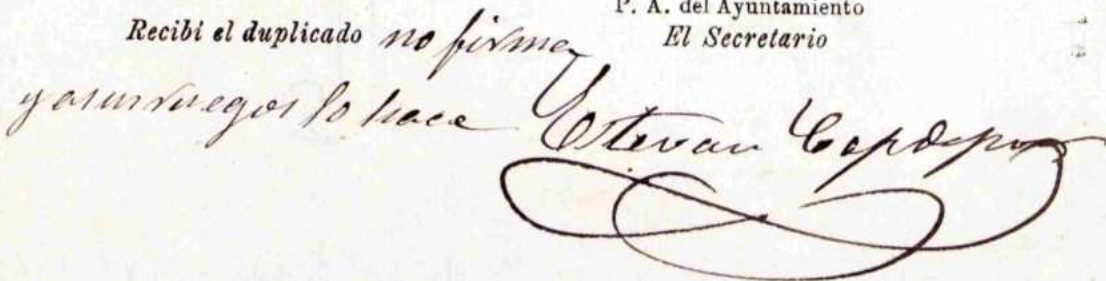 P. A. del Ayuntamiento
Recibí el duplicado no firma
El Secretario
y a sus ruegos lo hace Estevan Capdepon